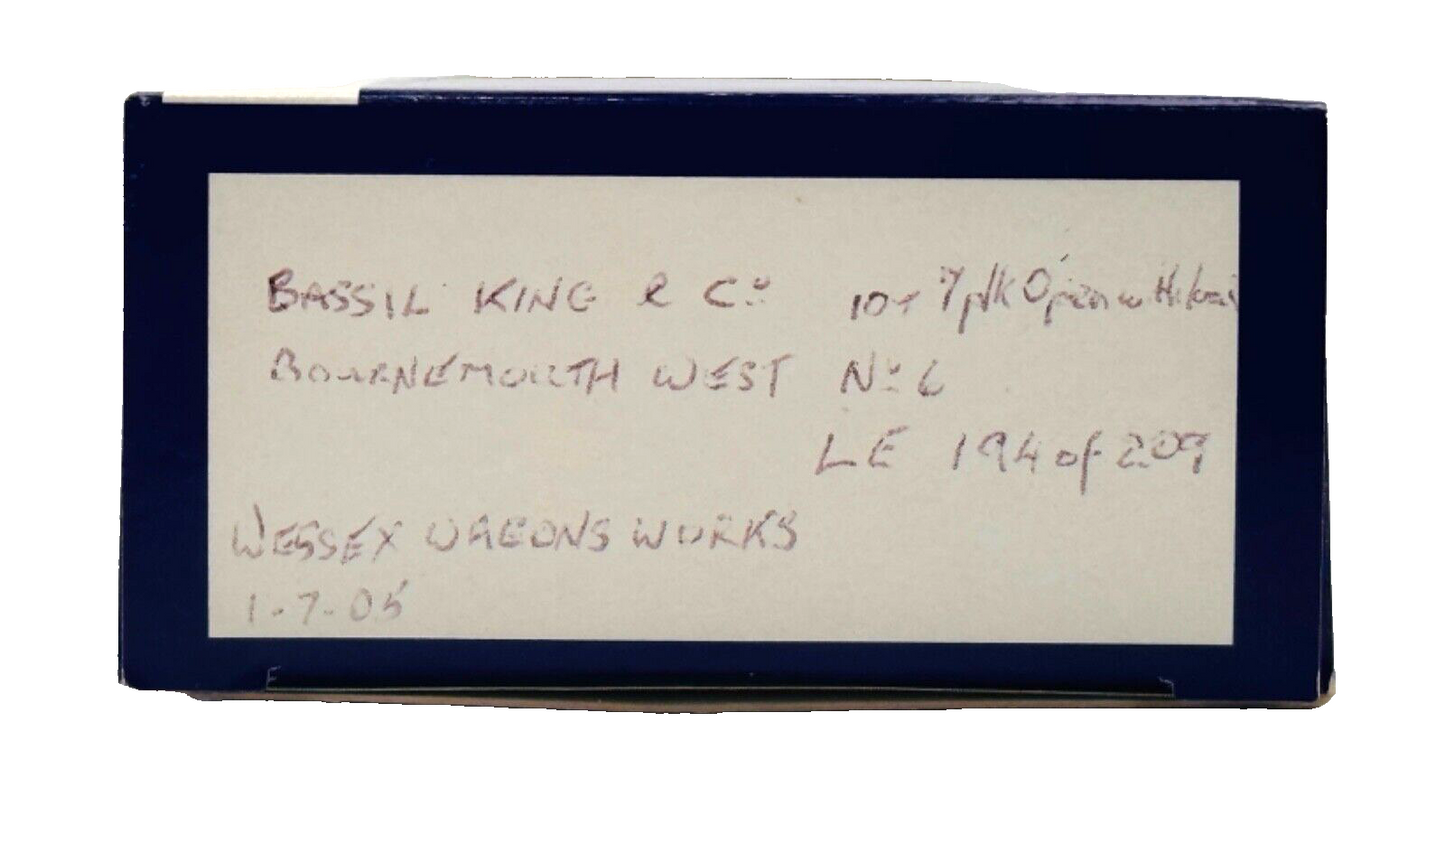 BASSIL KING & Cº 10T 7plk Open w
BOURNEMOUTH WEST Nº 6
LE 194 of 209
WESSEX WAGONS WORKS
1-7-05